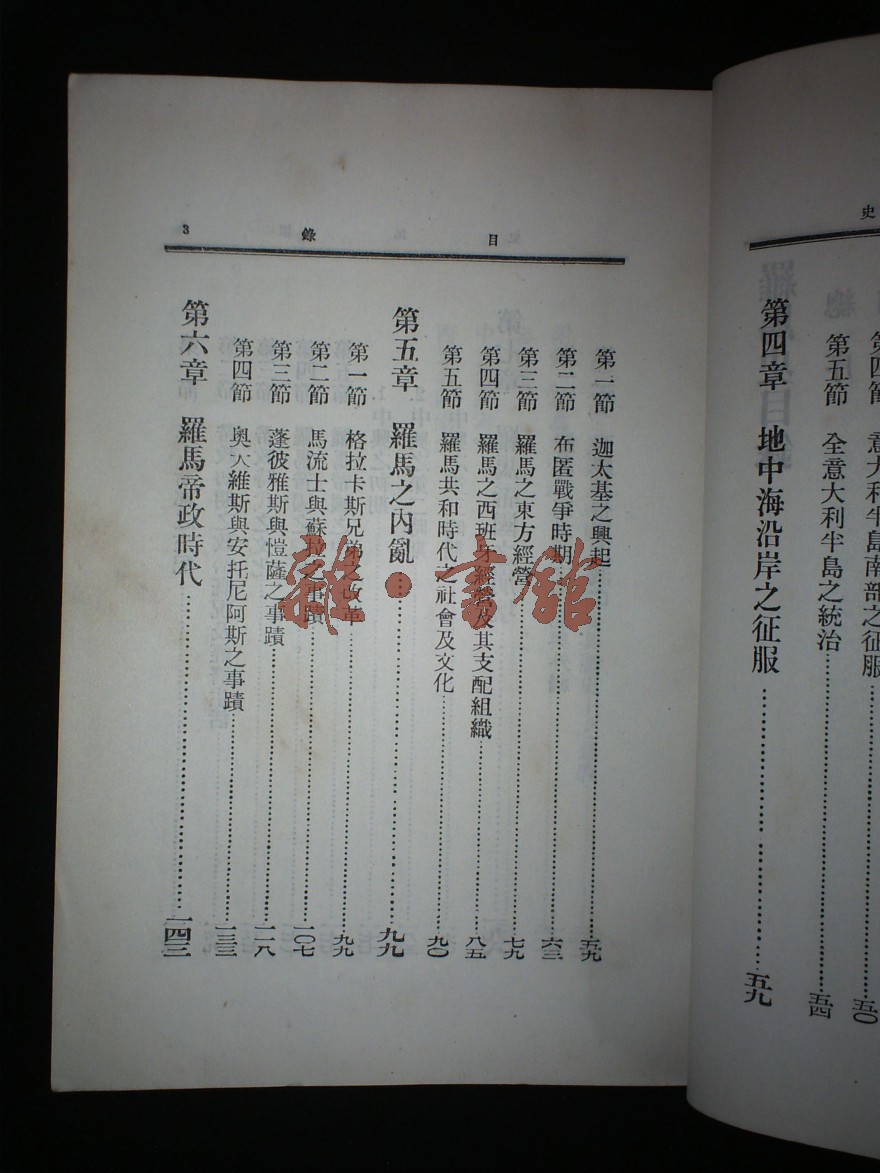 史
第四節 意大利半島南部之征服 五〇
第五節 全意大利半島之統治 五四
第四章 地中海沿岸之征服 五九
目錄 3
第一節 迦太基之興起 五九
第二節 布匿戰爭時期 六三
第三節 羅馬之東方經營 七九
第四節 羅馬之西班牙經營及其支配組織 八五
第五節 羅馬共和時代之社會及文化 九〇
第五章 羅馬之內亂 九九
第一節 格拉卡斯兄弟之改革 九九
第二節 馬流士與蘇拉之事蹟 一〇七
第三節 蓬彼雅斯與愷薩之事蹟 一一八
第四節 奧大維斯與安托尼阿斯之事蹟 一三三
第六章 羅馬帝政時代 一四三
雜·書館